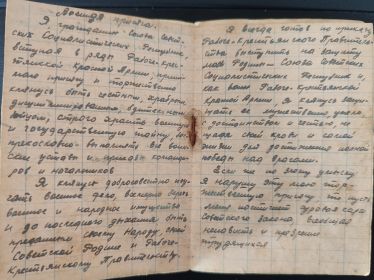 военная присяга.
Я гражданин Союза Совет-
ских Социалистических Республик,
вступая в ряды Рабоче-Крес-
тьянской Красной Армии, прини-
маю присягу и торжественно
клянусь быть честным, храбрым,
дисциплинированным, бдительным
бойцом, строго хранить военную
и государственную тайну,
прекословно выполнять все воин-
ские уставы и приказы команди-
ров и начальников
Я клянусь добросовестно изу-
чать военное дело, всемерно беречь
военное и народное имущество
и до последнего дыхания быть
преданным своему Народу, своей
Советской Родине и Рабоче-
Крестьянскому Правительству.
Я всегда готов по приказу
Рабоче-Крестьянского Правительс-
тва выступить на защиту
моей Родины - Союза Советских
Социалистических Республик и,
как воин Рабоче-Крестьянской
Красной Армии, я клянусь защи-
щать её мужественно, умело,
с достоинством и честью, не
щадя своей крови и самой
жизни для достижения полной
победы над врагами.
Если же по злому умыслу
я нарушу эту мою тор-
жественную присягу, то пусть
меня постигнет суровая кара
Советского закона, всеобщая
ненависть и презрение
трудящихся